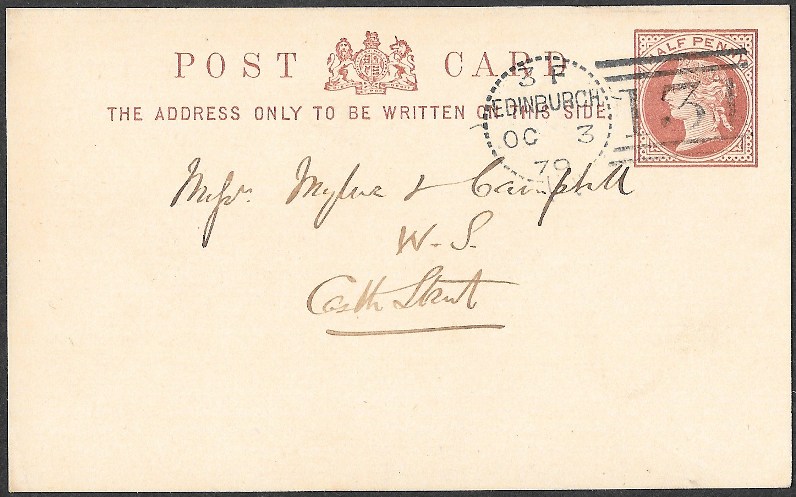 POST CARD
THE ADDRESS ONLY TO BE WRITTEN ON THIS SIDE
HALF PENNY
3 F
EDINBURGH
OC 3
79
131
Messrs. Mylne & Campbell
W. S.
Castle Street